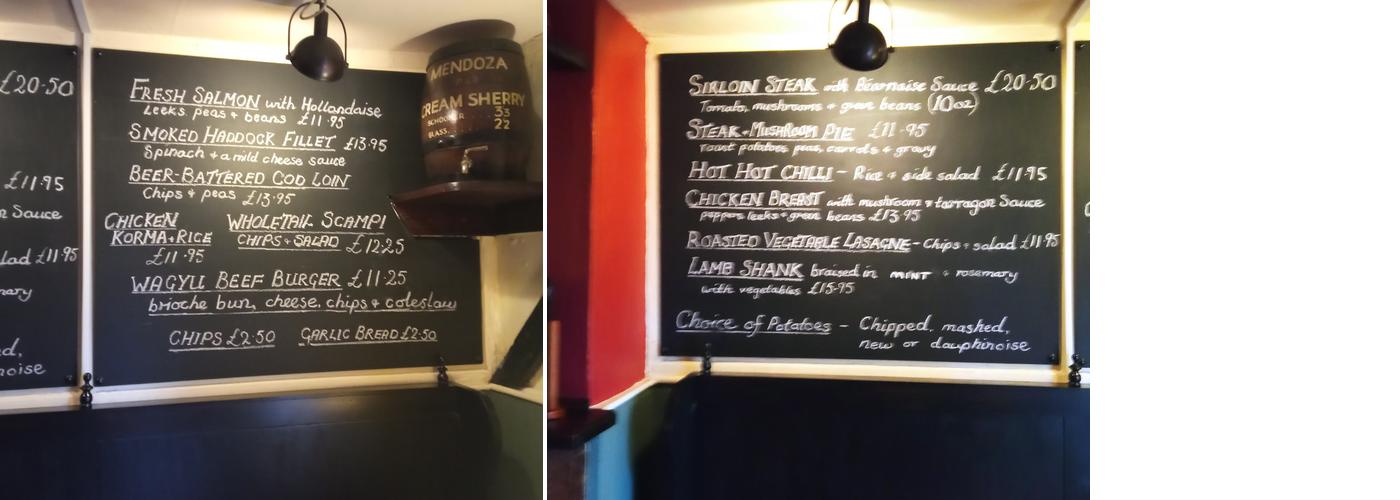 £20.50
£11.95
Sauce
lad £11.95
ary
ed,
noise
FRESH SALMON with Hollandaise
Leeks, peas + beans £11.95
SMOKED HADDOCK FILLET £13.95
Spinach + a mild cheese sauce
BEER-BATTERED COD LOIN
Chips + peas £13.95
CHICKEN
KORMA+RICE
£11.95
WHOLETAIL SCAMPI
CHIPS + SALAD £12.25
WAGYU BEEF BURGER £11.25
brioche bun, cheese, chips + coleslaw
CHIPS £2.50 GARLIC BREAD £2.50
MENDOZA
CREAM SHERRY
SCHOONER 33
GLASS 22
SIRLOIN STEAK with Béarnaise Sauce £20.50
Tomato, mushrooms + green beans (10oz)
STEAK+MUSHROOM PIE £11.95
roast potatoes, peas, carrots + gravy
HOT HOT CHILLI - Rice + side salad £11.95
CHICKEN BREAST with mushroom + tarragon Sauce
peppers leeks + green beans £13.95
ROASTED VEGETABLE LASAGNE - Chips + salad £11.95
LAMB SHANK braised in MINT + rosemary
with vegetables £15.95
Choice of Potatoes - Chipped, mashed,
new or dauphinoise